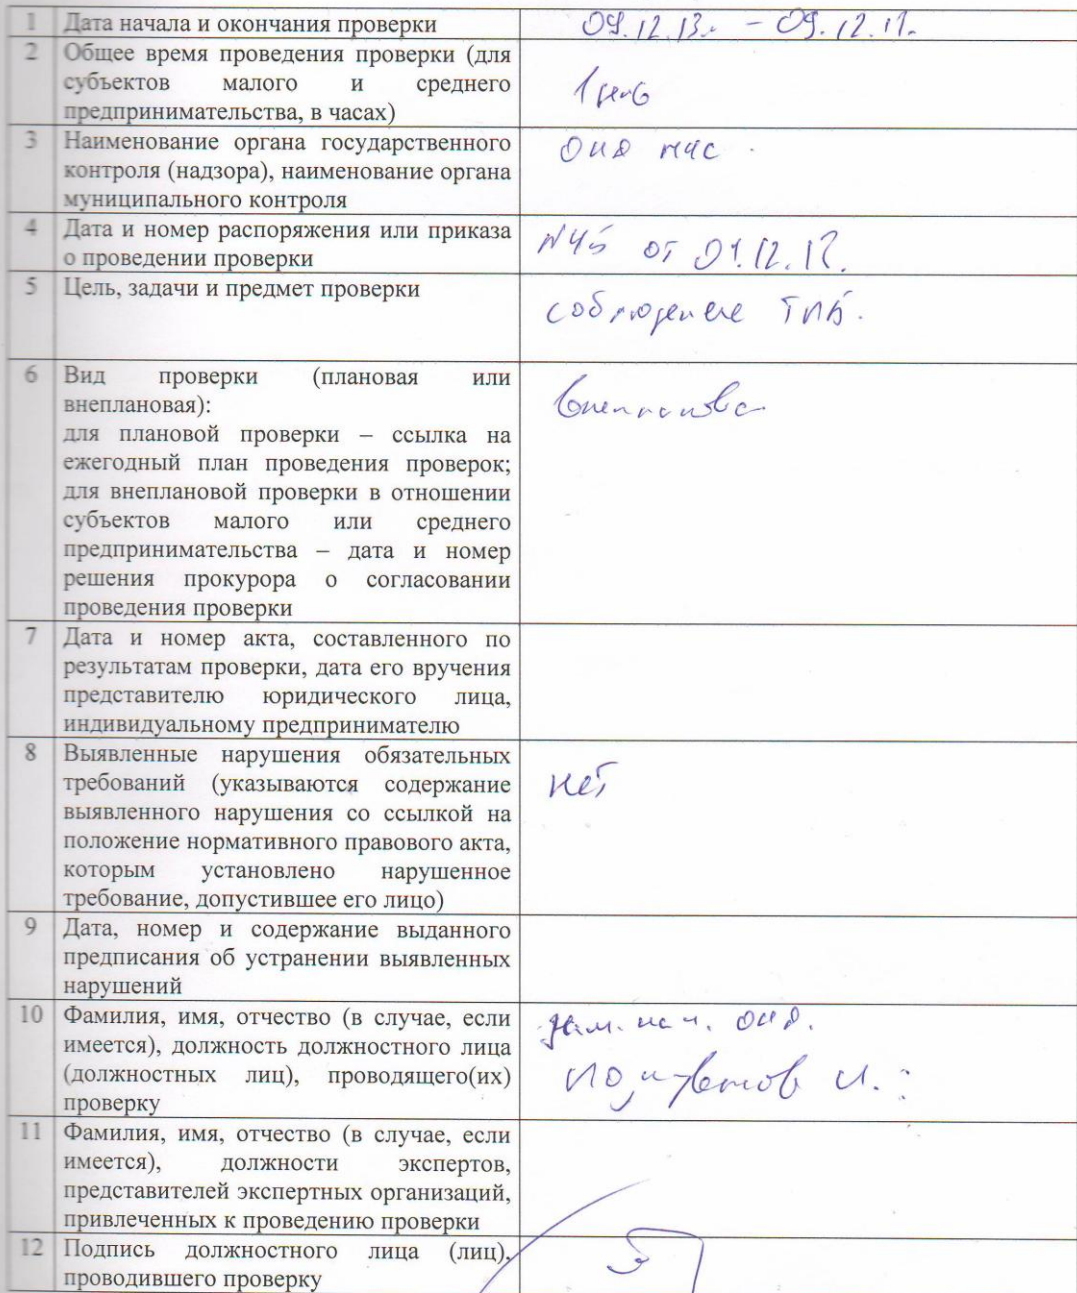 1 Дата начала и окончания проверки 09.12.13г. - 09.12.17.
2 Общее время проведения проверки (для
субъектов малого и среднего
предпринимательства, в часах)
1 день
3 Наименование органа государственного
контроля (надзора), наименование органа
муниципального контроля
ОНД МЧС.
4 Дата и номер распоряжения или приказа
о проведении проверки
N45 от
5 Цель, задачи и предмет проверки
соблюдение ТПБ.
6 Вид проверки (плановая или
внеплановая):
для плановой проверки – ссылка на
ежегодный план проведения проверок;
для внеплановой проверки в отношении
субъектов малого или среднего
предпринимательства – дата и номер
решения прокурора о согласовании
проведения проверки
внеплановая
7 Дата и номер акта, составленного по
результатам проверки, дата его вручения
представителю юридического лица,
индивидуальному предпринимателю
8 Выявленные нарушения обязательных
требований (указываются содержание
выявленного нарушения со ссылкой на
положение нормативного правового акта,
которым установлено нарушенное
требование, допустившее его лицо)
нет
9 Дата, номер и содержание выданного
предписания об устранении выявленных
нарушений
10 Фамилия, имя, отчество (в случае, если
имеется), должность должностного лица
(должностных лиц), проводящего(их)
проверку
Зам. нач. ОНД.
11 Фамилия, имя, отчество (в случае, если
имеется), должности экспертов,
представителей экспертных организаций,
привлеченных к проведению проверки
12 Подпись должностного лица (лиц),
проводившего проверку